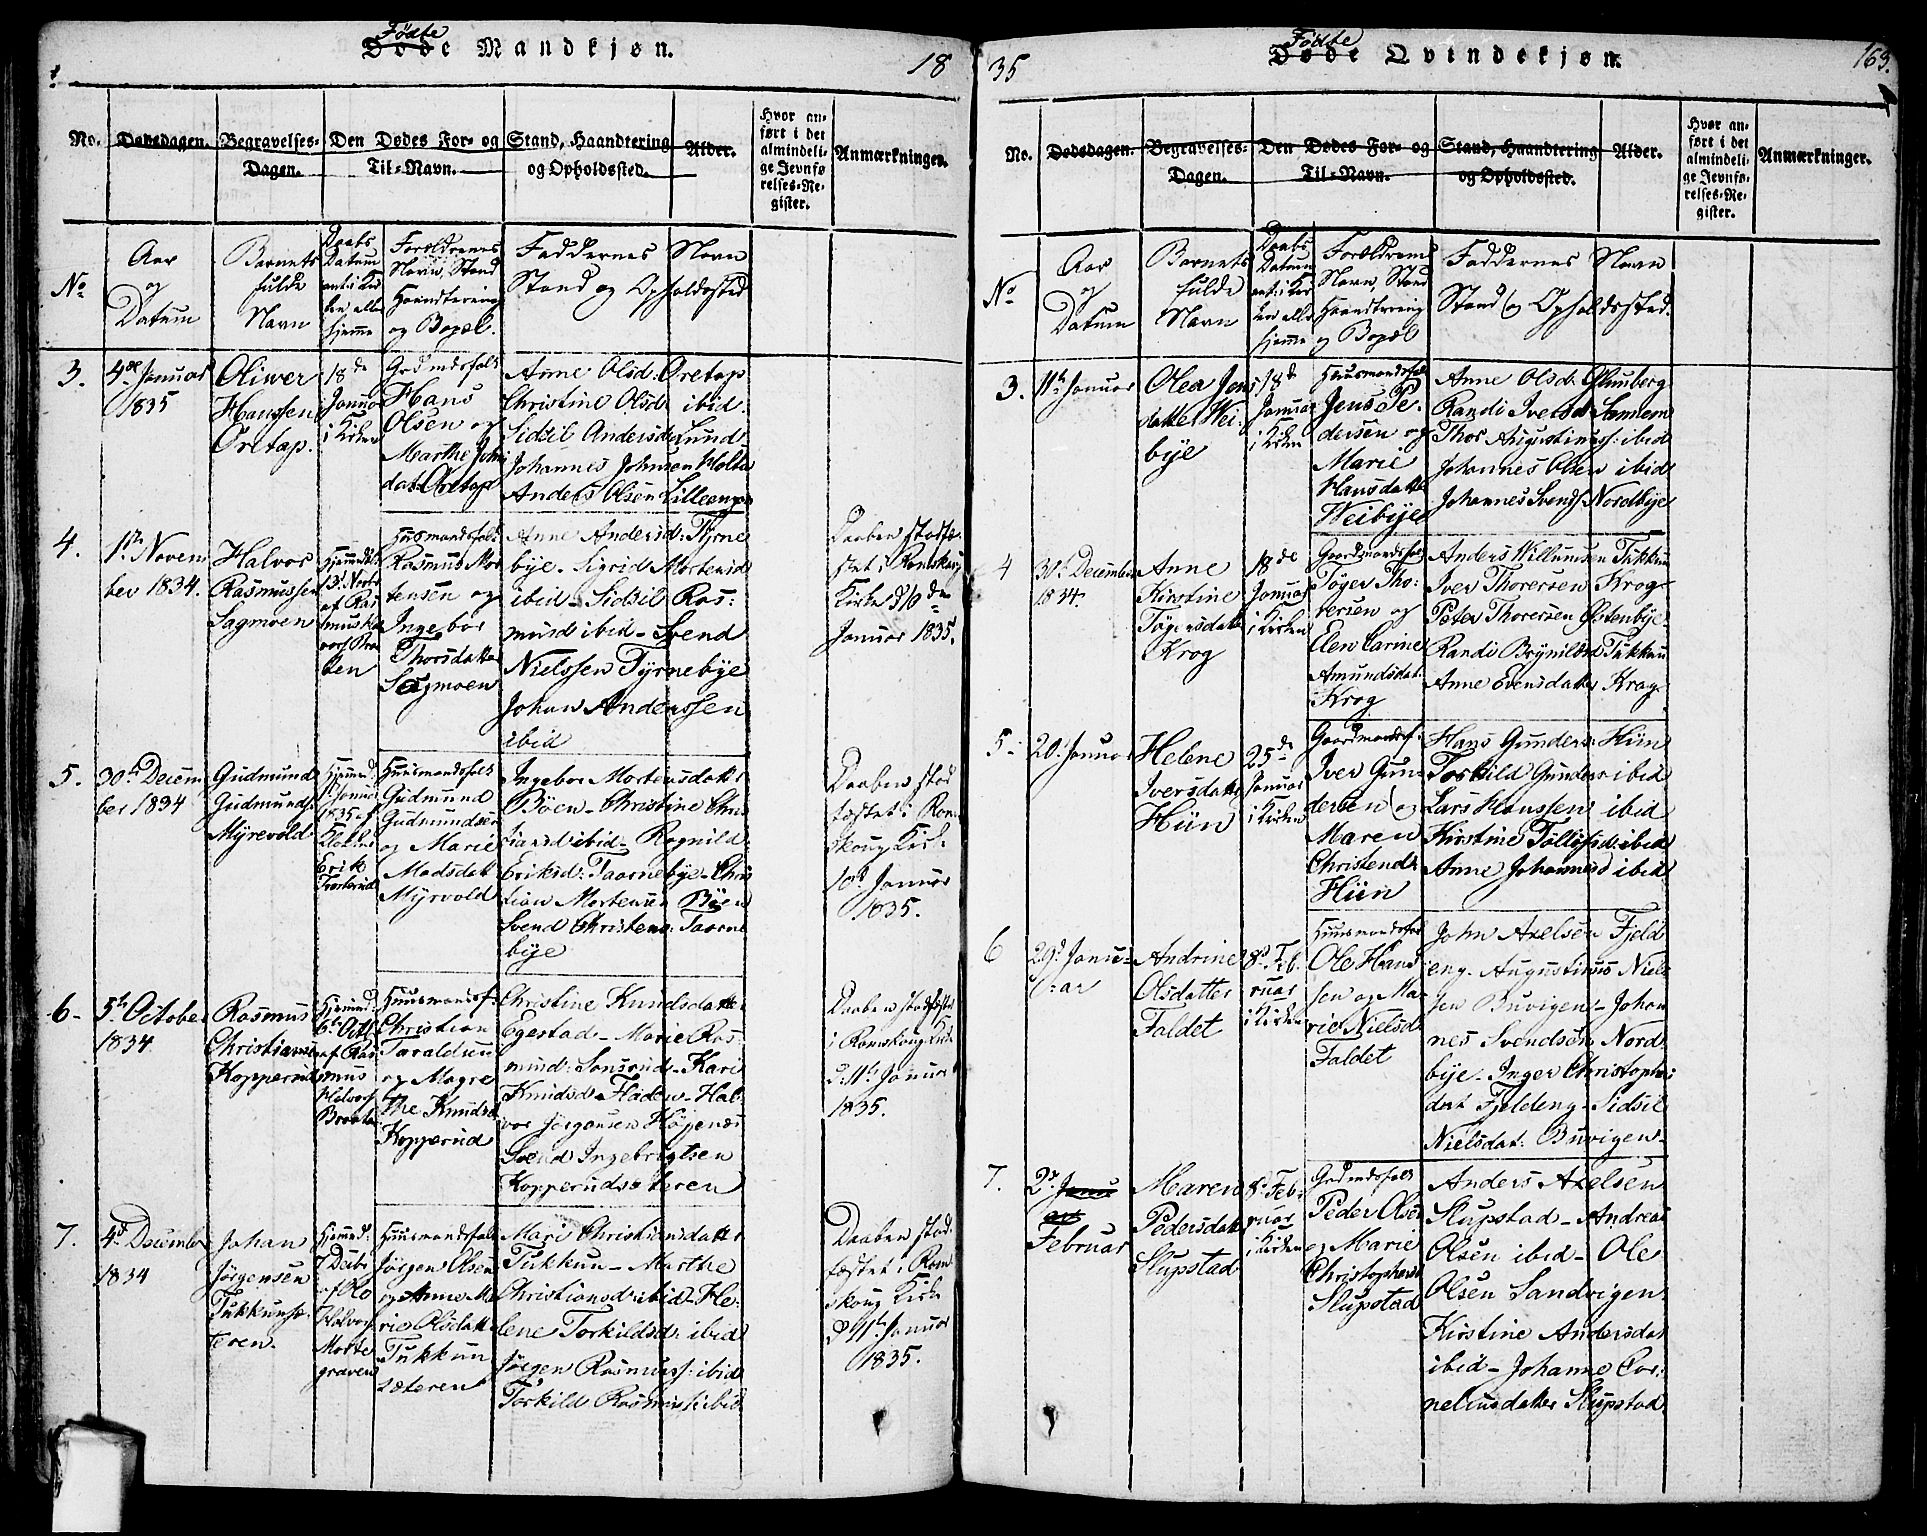 Fødte
Døde Mandkjøn.
18
No.
Dødsdagen.
Begravelses-
Dagen.
Den Dødes For- og
Til-Navn.
Stand, Haandtering
og Opholdssted.
Alder.
Hvor an-
ført i det
almindeli-
ge Jevnfø-
relses-Re-
gister.
Anmærkninger.
No
Aar
og
Datum
Barnets
fulde
Navn
Daabs
Datum
enten i Kir
ken eller
hjemme
Forældrenes
Navn, Stand
Haandtering
og Bopæl.
Faddernes Navn
Stand og Opholdssted
3.
4de Januar
1835
Oliver
Hanssen
Oretap.
18de
Januar
i Kirken
Grdmdsfolk
Hans
Olsen og
Marthe Johns
dat: Oretap
Anne Olsd: Oretap
Christine Olsd: ibid.
Sidsil Andersd: Lund
Johannes Johnsen Holte
Anders Olsen Lilleenge
4.
1ste Novem
ber 1834.
Halvor
Rasmussen
Sagmoen
Hjemmedøbt
Huusmandsfolk
Rasmus Mor
tensen og
Ingebor
Thorsdatter
Sagmoen
Anne Andersd: Tyrne
bye. Sigrid Mortensd
ibid – Sidsil Ras:
musd ibid – Svend
Nielssen Tyrnebye
Johan Anderssen
ibid
Daaben stadfæ
stet i Romskoug
Kirke d 10de
Januar 1835.
5.
30te Decem
ber 1834
Gudmund
Gudmunds:
Myrevold
Hjemmed:
Januar
1835 af
Klokker
Erik
Huusmandsfolk
Gudmund
Gudmundsen
og Marie
Madsdat
Myrvold
Ingebor Mortensdatter
Böen – Christine Chris
tiansd ibid – Ragnild
Eriksd: Taarnebye – Chris
tian Mortensen Böen
Svend Christens: Taarne
bye
Daaben stad
fæstet i Rom
skoug Kirke
10d Januar
1835.
6.
5te October
1834.
Rasmus
Christians:
Kopperud
Hjemmed:
6te Octb
af Ras
mus
Halvors
Braaten
Huusmandsf:
Christian
Taraldsen
og Magre
the Knudsd
Kopperud
Christine Knudsdatter
Egestad – Marie Ras
musd: Sonsrud – Kari
Knudsd: Fladen – Hal
vor Jørgensen Højenæs
Svend Ingebrigtsen
Kopperudsæteren
Daaben stadfæstet
i Romskoug Kirke
d: 11te Januar
1835.
7.
4de December
1834
Johan
Jørgensen
Tukkunsæ:
teren.
Hjemmed:
7 Decbr
af Ole
Halvors
Morte
graven
Huusmandsfolk
Jørgen Olsen
og Anne Ma
rie Olsdatter
Tukkun
sæteren
Mari Christiansdatter
Tukkun – Marthe
Christiansd: ibid – He
lene Torkildsd: ibid
Jørgen Rasmuss: ibid
Torkild Rasmuss: ibid
Daaben stad
fæstet i Rom
skoug Kirke
d 11te Januar
1835.
35
Fødte
Døde Qvindekjøn.
163.
No.
Dødsdagen.
Begravelses-
Dagen.
Den Dødes For- og
Til-Navn.
Stand, Haandtering
og Opholdssted.
Alder.
Hvor an-
ført i det
almindeli-
ge Jevnfø-
relses-Re-
gister.
Anmærkninger.
No
Aar
og
Datum
Barnets
fulde
Navn
Daabs
Datum
enten i Kir
ken eller
hjemme
Forældrenes
Navn, Stand
Haandtering
og Bopæl
Faddernes Navn
Stand og Opholdssted.
3.
11te Januar
Olea Jens
datter Wei
bye
18de
Januar
i Kirken
Huusmandsfolk
Jens Pe:
dersen og
Marie
Hansdatter
Weibye
Anne Olsd: Glumberg
Randi Iversd Sannem
Thor Augustinuss: ibid
Johannes Olsen ibid
Johannes Svends Nordbye
4
30te December
1834.
Anne
Kirstine
Tøgersdatter
Krog
18de
Januar
i Kirken
Gaardmandsfolk
Tøger Tho:
rersen og
Elen Carine
Amundsdat:
Krog
Anders Willumsen Tukkun
Iver Thorersen Krog
Peter Thorersen Østenbye
Randi Brynildsd Tukkun
Anne Evensdatter Krog
5.
20. Januar
Helene
Iversdatter
Hün
25de
Januar
i Kirken
Gaardmandsf.
Iver Gun
dersen og
Maren
Christend:
Hün
Hans Gunders: Hün
Torkild Gunders: ibid
Lars Hanssen ibid
Kirstine Tollefsd: ibid
Anne Johannesd ibid
6
29d Janu
ar
Andrine
Olsdatter
Faldet
8d Feb
ruar
i Kirken
Huusmandsfolk
Ole Hans
sen og Ma
rie Nielsd
Faldet
John Axelsen Fjeld
eng. Augustinus Niels
sen Buvigen – Johan
nes Svendsen Nord
bye – Inger Christophers
dat Fjeldeng – Sidsil
Nielsdat: Buvigen
7.
2d Janu
ar
Februar
Maren
Pedersdatter
Slupstad
8d Feb
ruar
i Kirken
Grdmdsfolk
Peder Olsen
og Marie
Christophersd
Slupstad
Anders Axelsen
Slupstad – Andreas
Olsen ibid – Ole
Olsen Sandvigen
Kirstine Andersdat
ibid – Johanne Cor
neliusdatter Slupstad